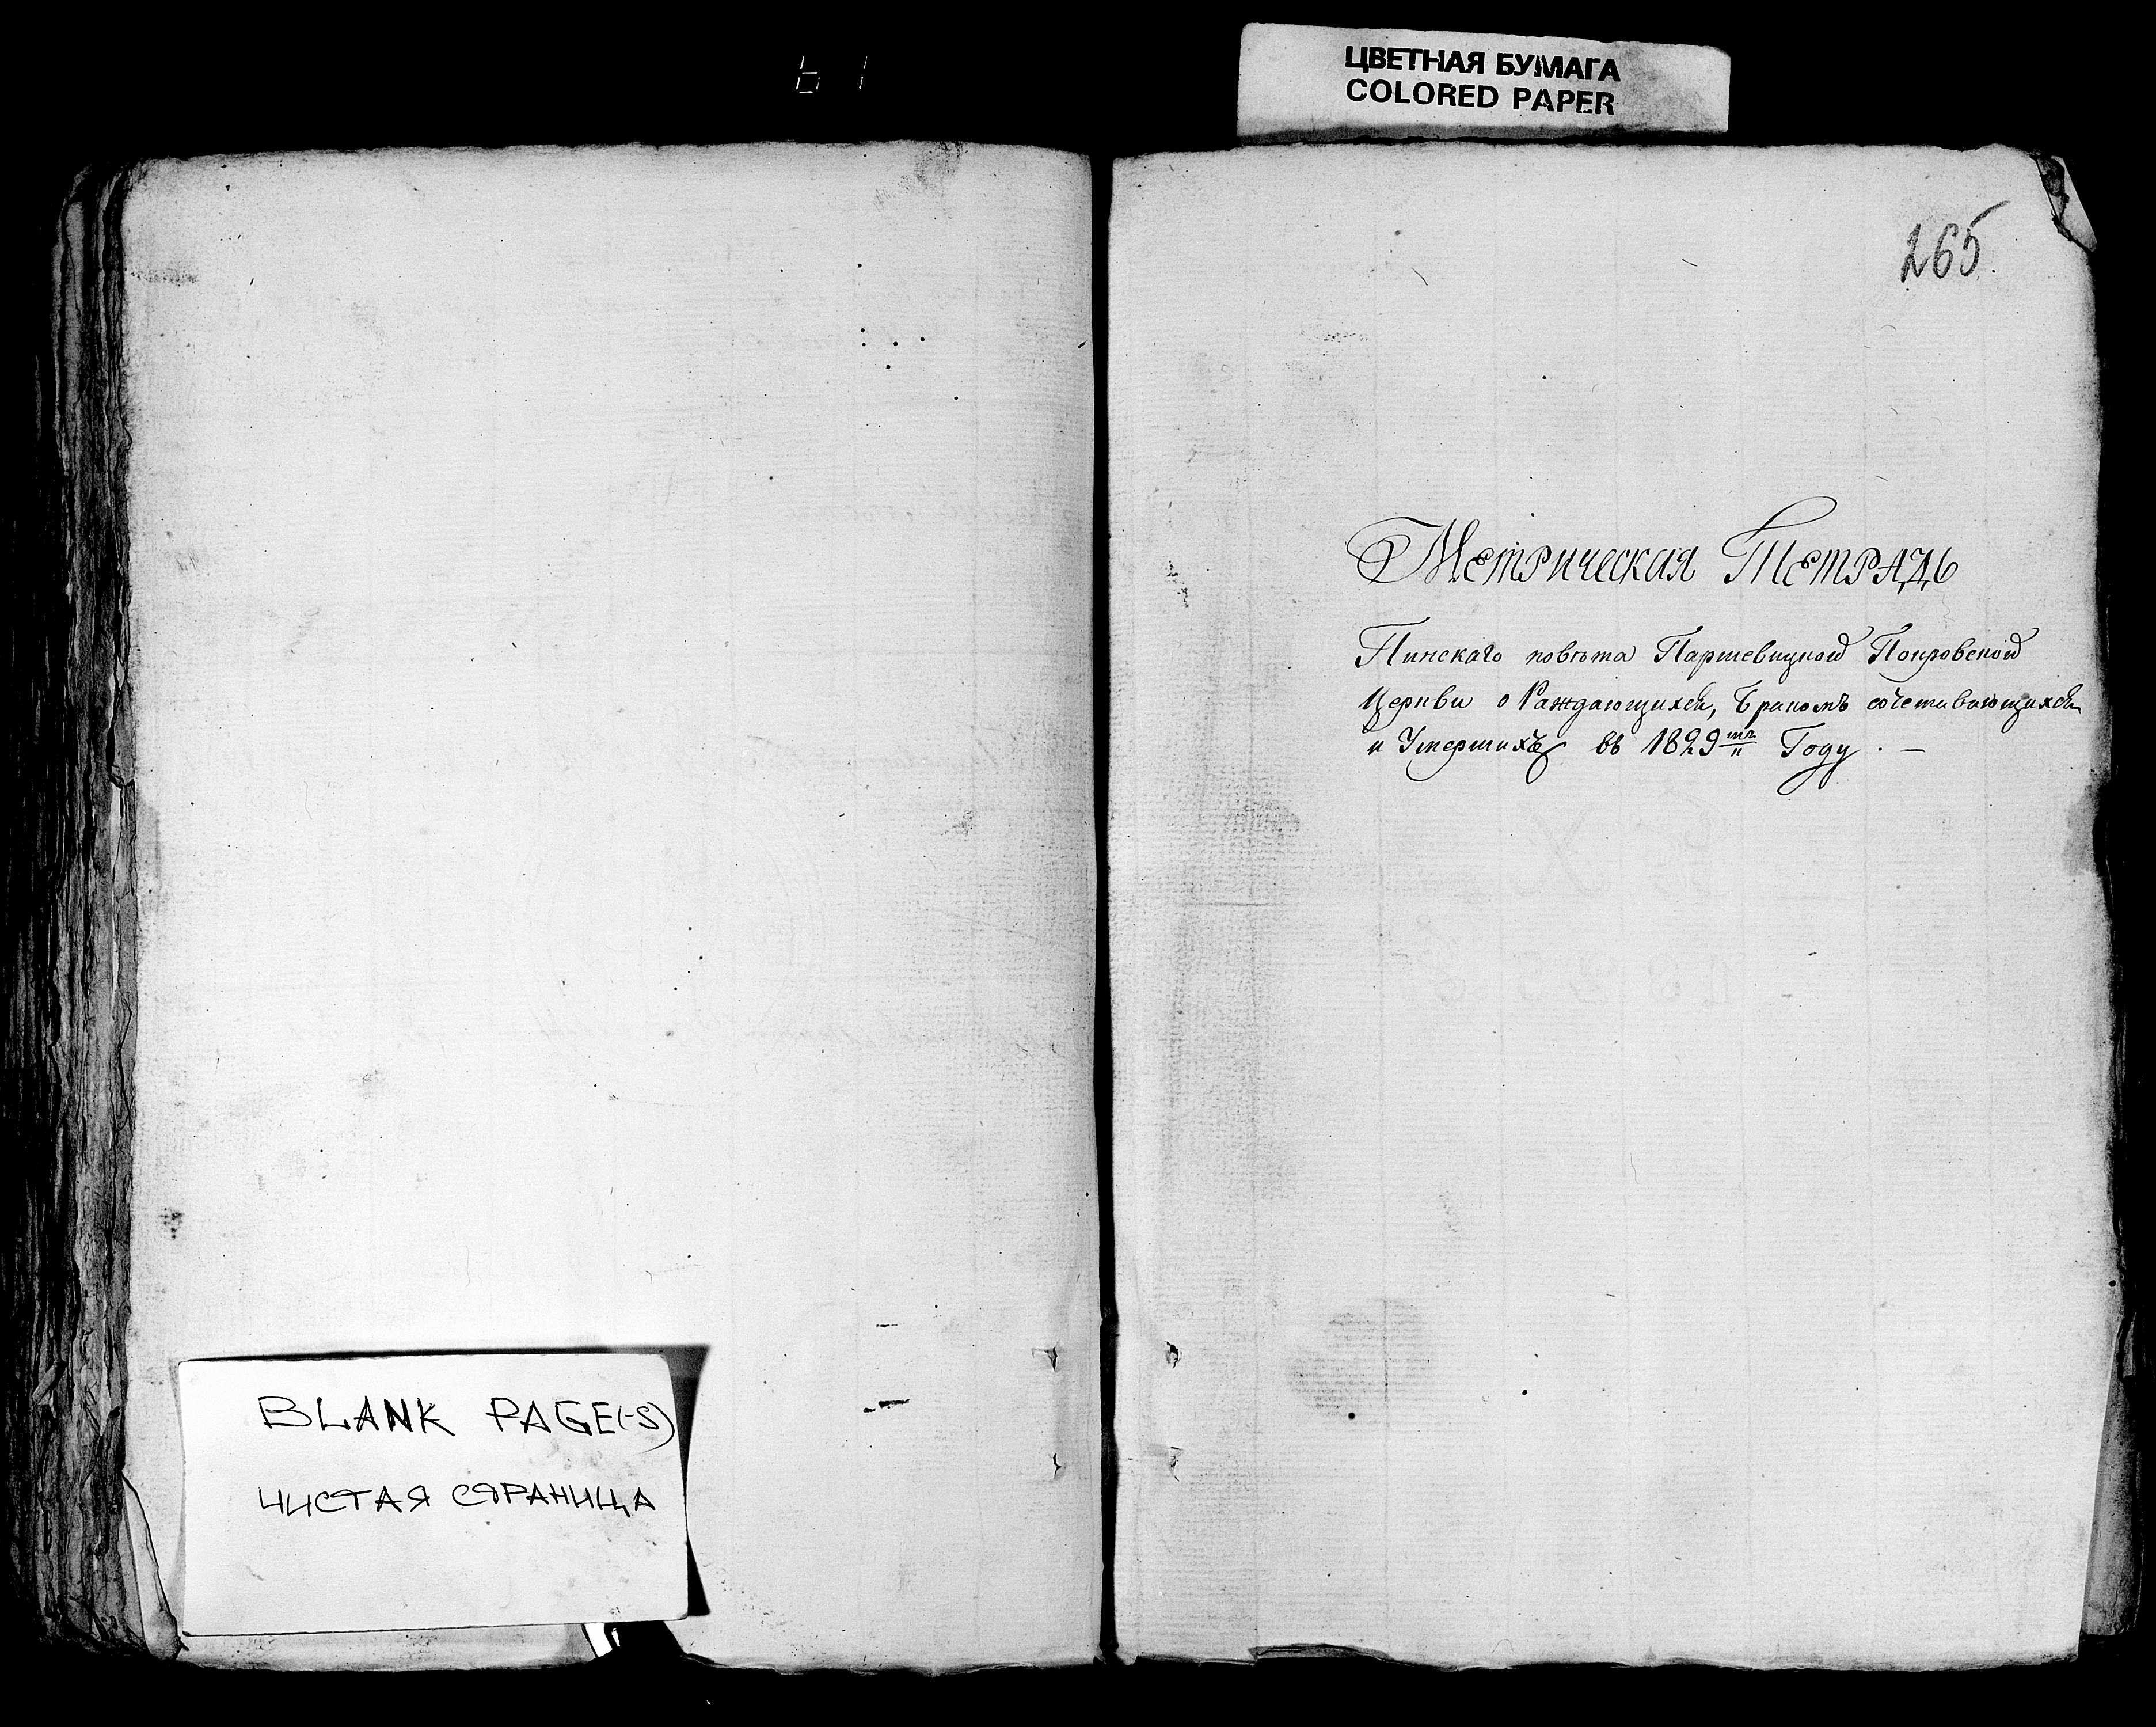 ЦВЕТНАЯ БУМАГА
COLORED PAPER
265.
Метрическая Тетрадь
Пинскаго повѣта Паршевицкой Покровской
Церкви о Раждающихся, Бракомъ сочетивающихся
и Умершихъ въ 1829мъ Году . —
BLANK PAGE(-S)
ЧИСТАЯ СТРАНИЦА